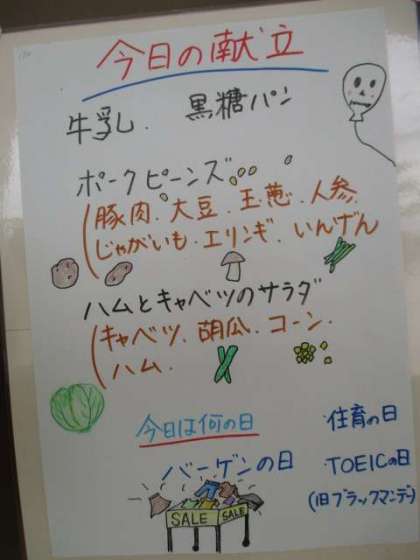 今日の献立
牛乳. 黒糖パン
ポークビーンズ
(豚肉.大豆.玉葱.人参.
じゃがいも.エリンギ.いんげん
ハムとキャベツのサラダ
(キャベツ.胡瓜.コーン.
ハム.
今日は何の日
・住育の日
バーゲンの日
・TOEICの日
(旧ブラックマンデー)
SALE SALE